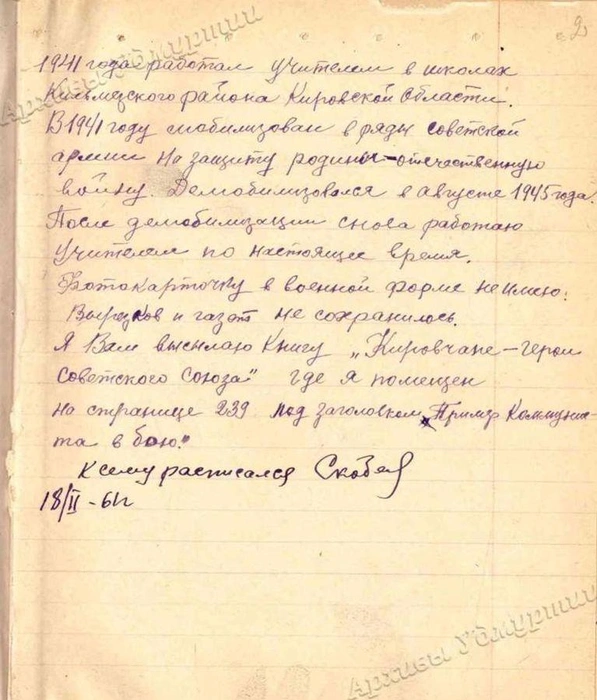 2
Архивы Удмуртии
1941 года работал учителем в школах
Кильмезского района Кировской области.
В 1941 году мобилизован в ряды советской
армии на защиту родины-отечественную
войну. Демобилизовался в августе 1945 года.
После демобилизации снова работаю
учителем по настоящее время.
Фотокарточку в военной форме не имею.
Вырезков и газет не сохранилось.
Я Вам высылаю книгу „Кировчане-герои
советского союза" где я помещен
на странице 239 под заголовком „Пример Коммунис-
та в бою."
к сему расписался
18/II-61г
Архивы Удмуртии